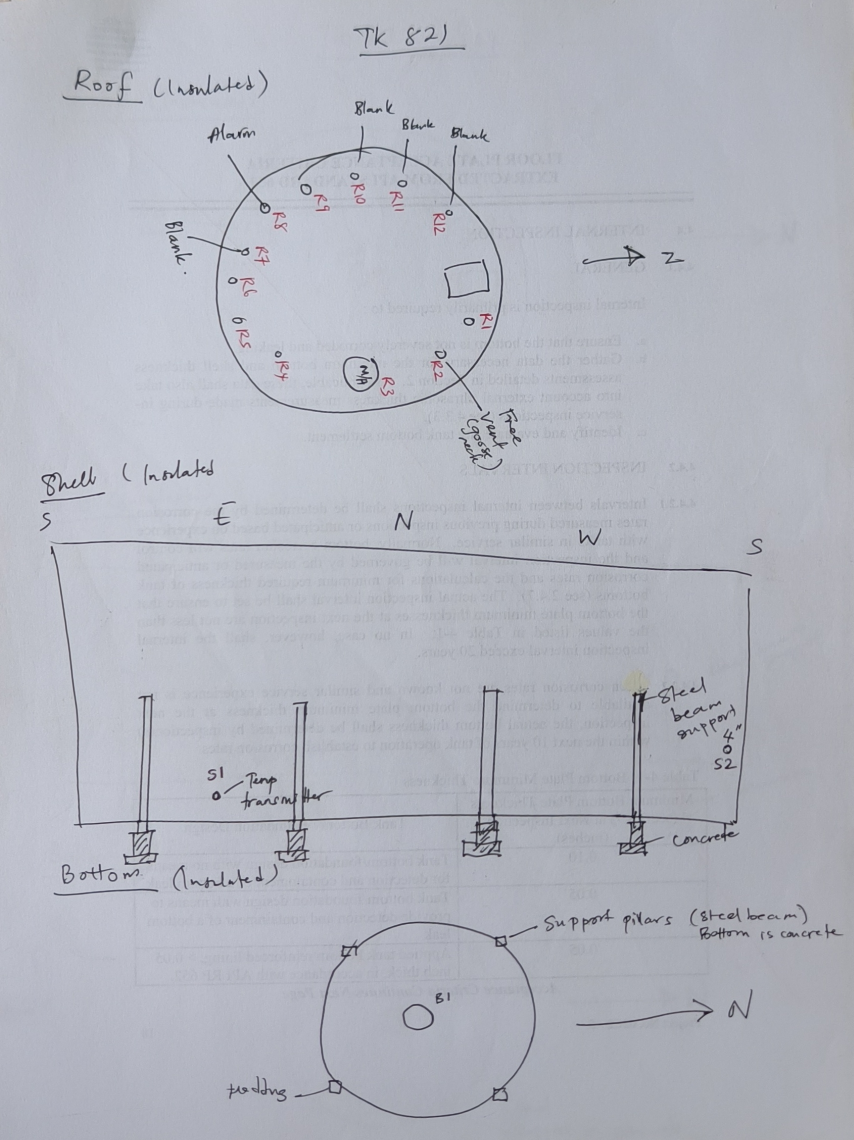 TK 821
Roof (Insulated)
Blank
Blank
Blank
Alarm
Blank.
R10
R9
R11
R12
R8
R7
R6
R5
R4
M/H
R3
R2
R1
N
Free
Vent
(goose
neck)
Shell (Insulated
S
E
N
W
S
Steel
beam
support
4"
S2
S1
Temp
transmitter
concrete
Bottom (Insulated)
Support pilars (Steel beam)
Bottom is concrete
B1
N